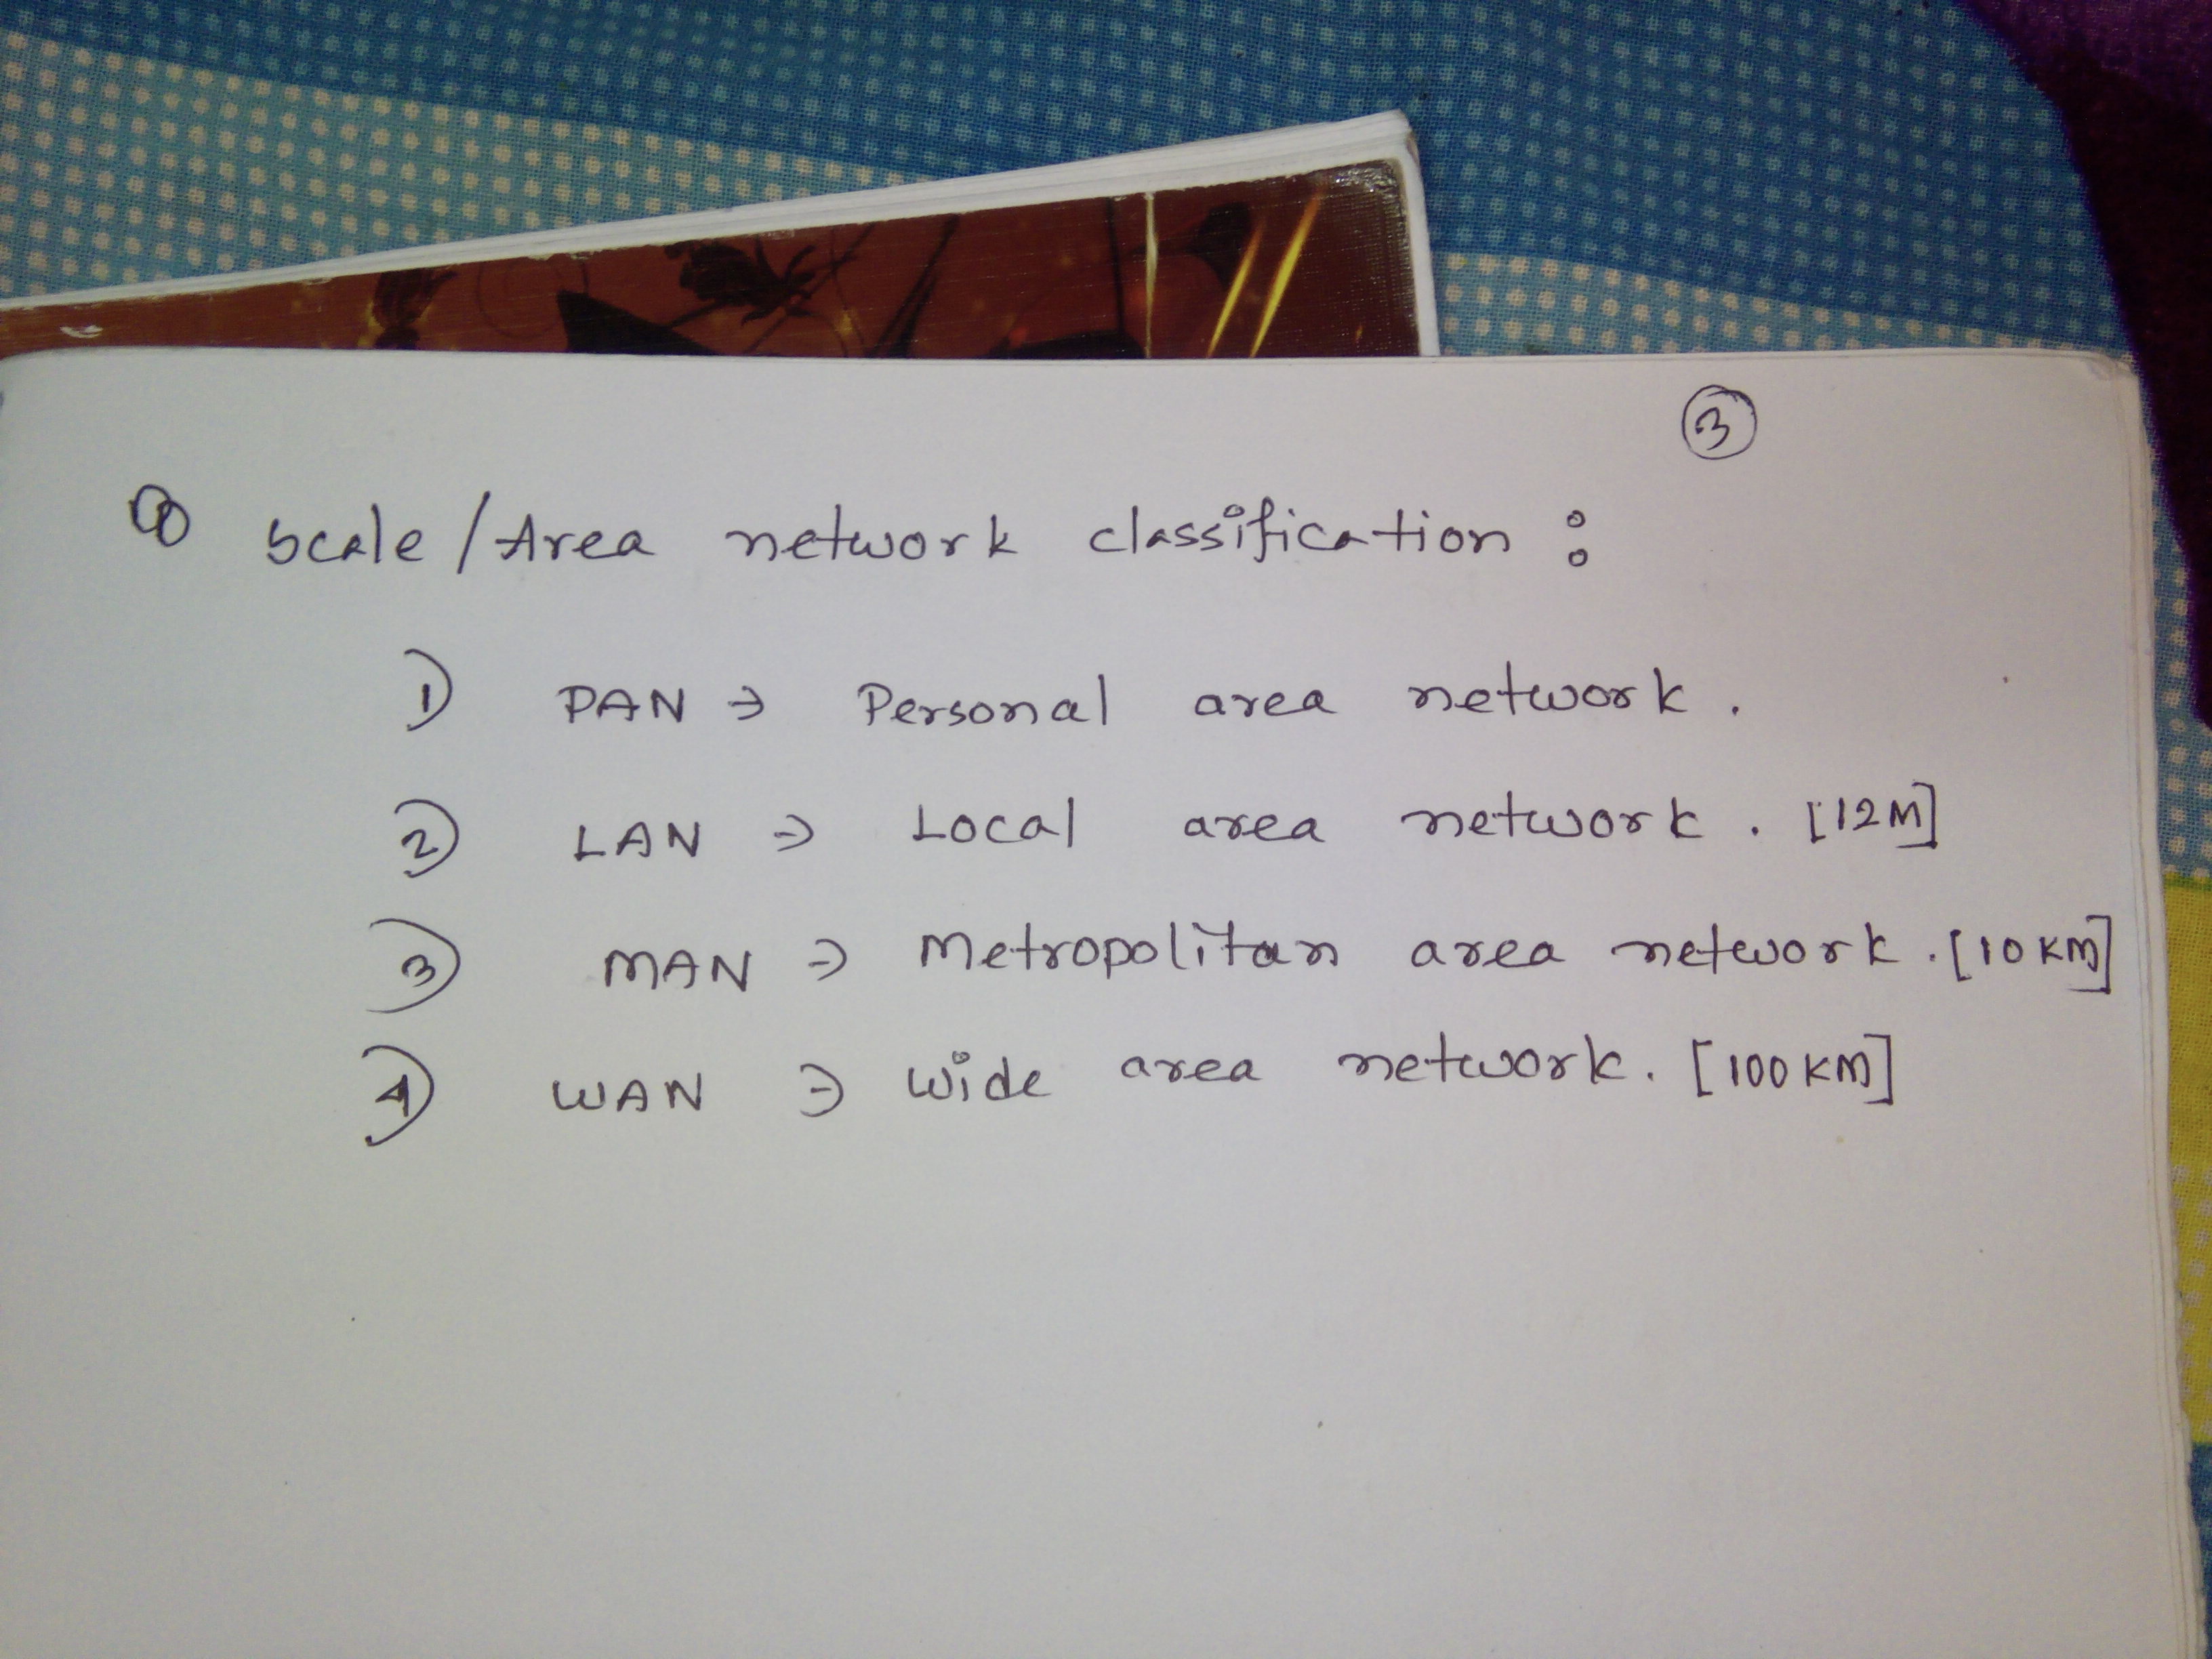 3
① Scale/Area network classification :
1) PAN → Personal area network.
2) LAN ⇒ Local area network. [12M]
3) MAN ⇒ Metropolitan area network. [10 KM]
4) WAN ⇒ Wide area network. [100 KM]